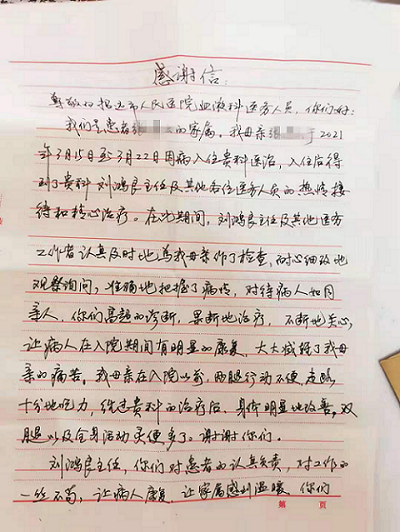 感谢信
尊敬的招远市人民医院血液科医务人员,你们好:
我们是患者 的家属。我母亲 于2021
年3月15日至3月22日因病入住贵科医治,入住后得
到了贵科刘鸿民主任及其他各位医务人员的热情接
待和精心治疗。在此期间,刘鸿民主任及其他医务
工作者认真及时地为我母亲作了检查,耐心细致地
观察询问,准确地把握了病情,对待病人如同
亲人,你们高超的诊断,果断地治疗,不断地关心,
让病人在入院期间有明显的康复,大大减轻了我母
亲的痛苦。我母亲在入院以前,两腿行动不便,走路
十分地吃力,经过贵科的治疗后,身体明显地改善。双
腿以及全身活动灵便多了。谢谢你们。
刘鸿民主任,你们对患者的认真负责,对工作的
一丝不苟,让病人康复,让家属感到温暖,你们
第 页